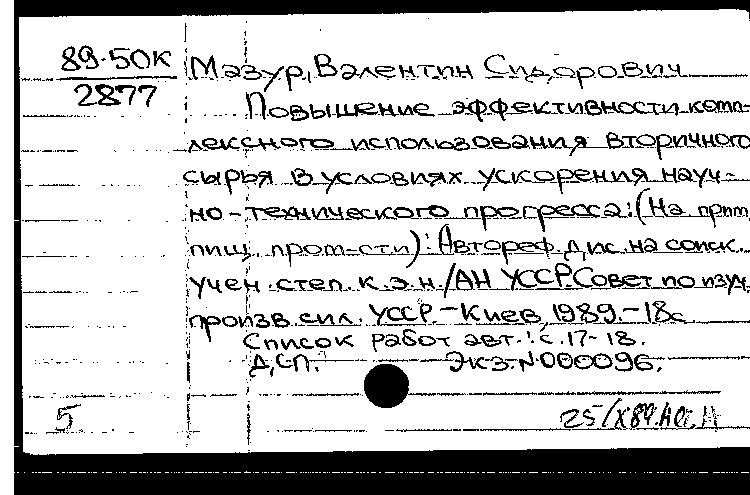 89-50К
2877
Мазур, Валентин Сидорович
Повышение эффективности комп-
лексного использования вторичного
сырья в условиях ускорения науч-
но-технического прогресса: (На прим.
пищ. пром-сти): Автореф. дис. на соиск.
учен. степ. к. э. н. / АН УССР. Совет по изуч.
произв. сил. УССР. - Киев, 1989. - 18с
Список работ авт.: с. 17-18.
Д.С.П. Экз. N000096.
5